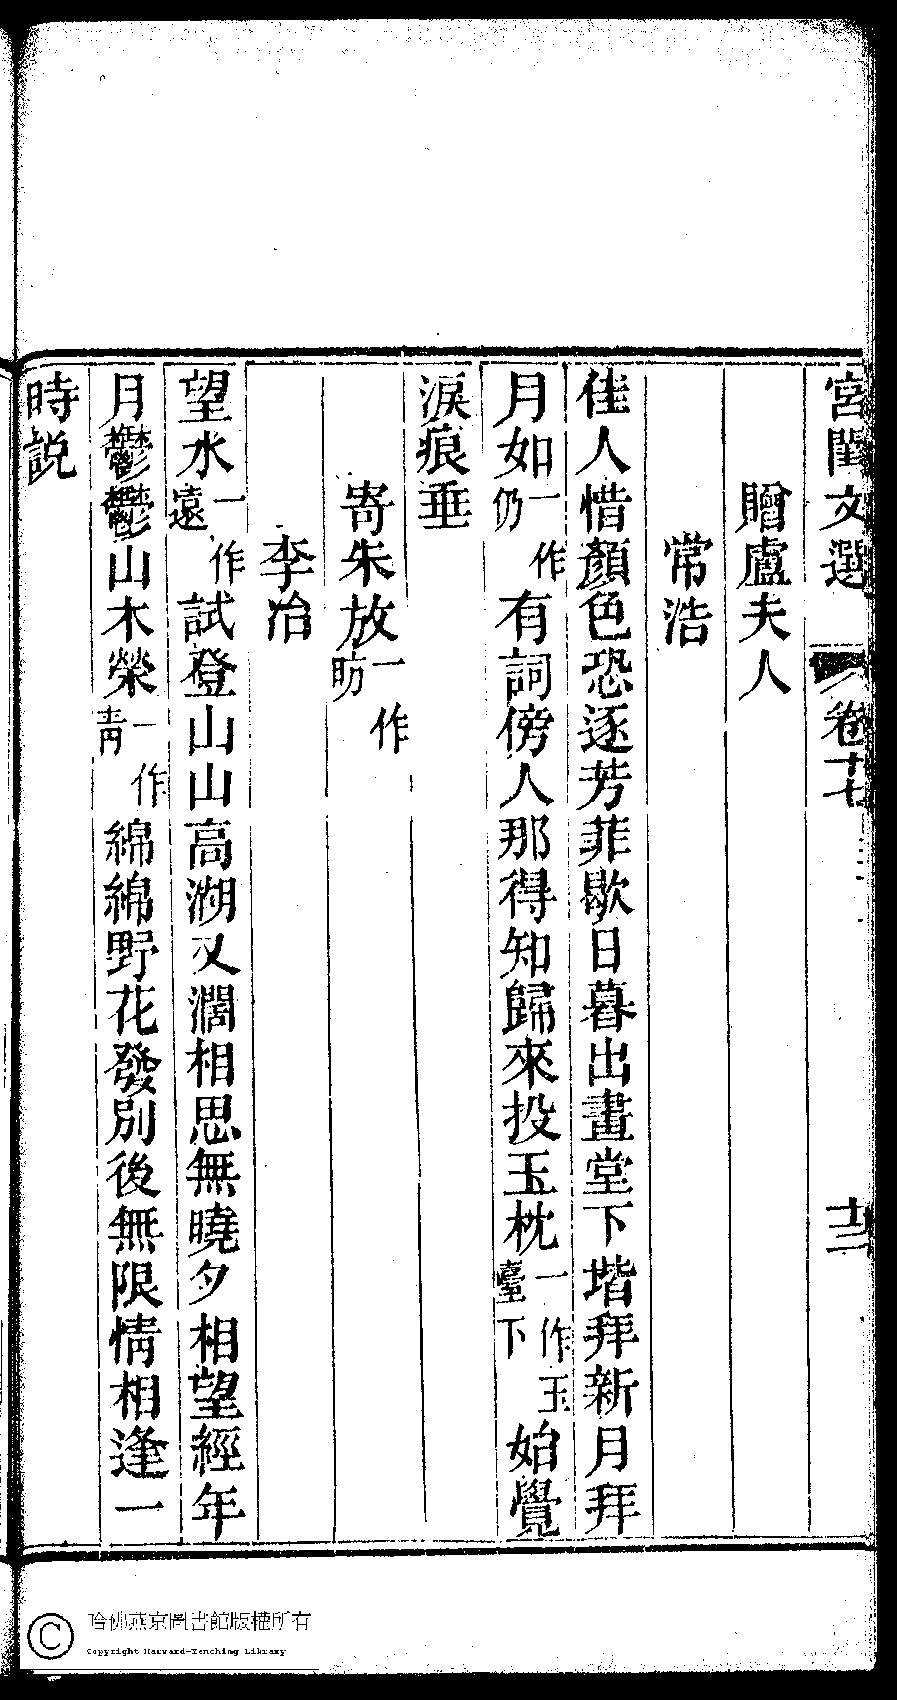 宮閨文選 卷十七 十二
贈盧夫人
常浩
佳人惜顏色恐逐芳菲歇日暮出畫堂下堦拜新月拜
月如一作仍有詞傍人那得知歸來投玉枕一作玉臺下始覺
淚痕垂
寄朱放一作昉
李冶
望水一作遠試登山山高湖又濶相思無曉夕相望經年
月鬱鬱山木榮一作青綿綿野花發別後無限情相逢一
時説
哈佛燕京圖書館版權所有
Copyright Harvard-Yenching Library